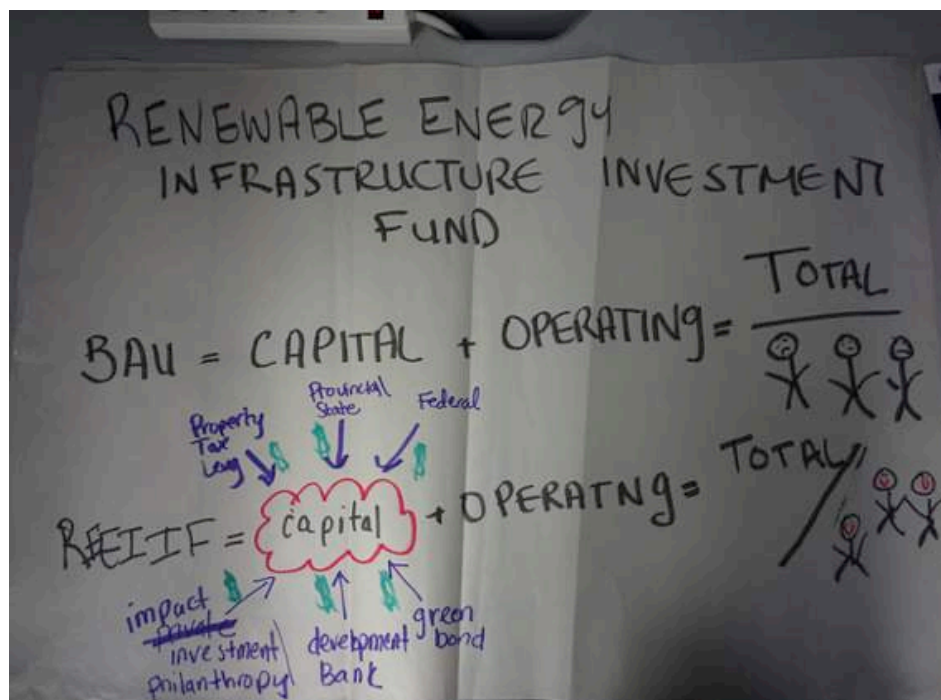 RENEWABLE ENERGY
INFRASTRUCTURE INVESTMENT
FUND
BAU = CAPITAL + OPERATING = TOTAL
Property
Tax
Levy
$
Provincial
State
$
Federal
$
REIIF = capital + OPERATNG = TOTAL
$
impact
private
investment
philanthropy
$
development
Bank
$
green
bond